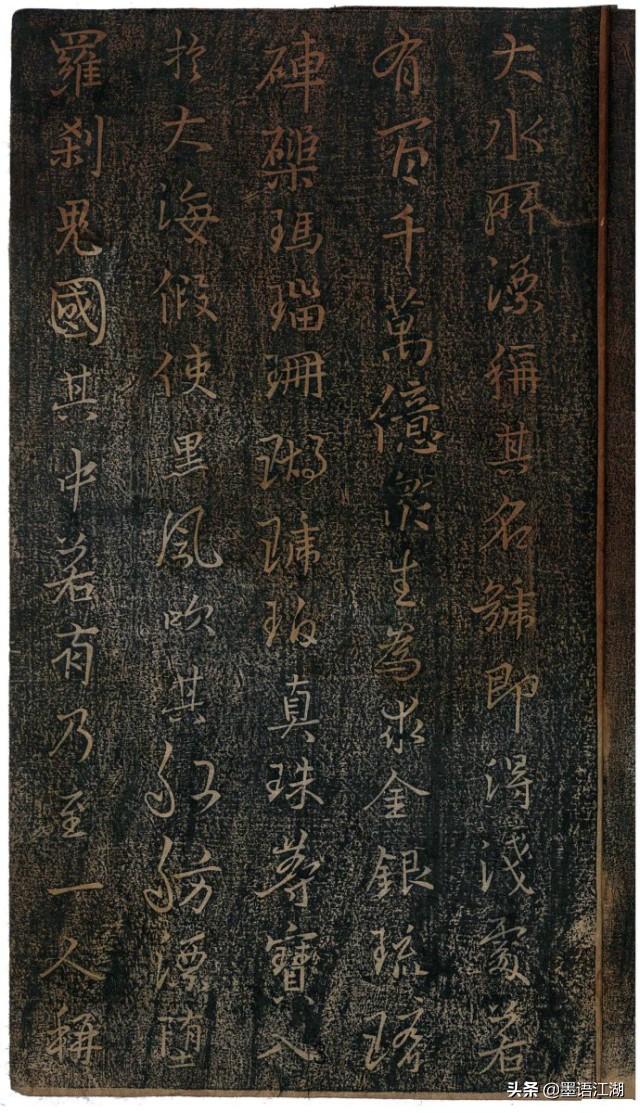 大水所漂稱其名號即得淺處若
有百千萬億眾生為求金銀琉璃
硨磲瑪瑙珊瑚琥珀真珠等寶入
於大海假使黑風吹其船舫漂墮
羅剎鬼國其中若有乃至一人稱
头条 @墨语江湖